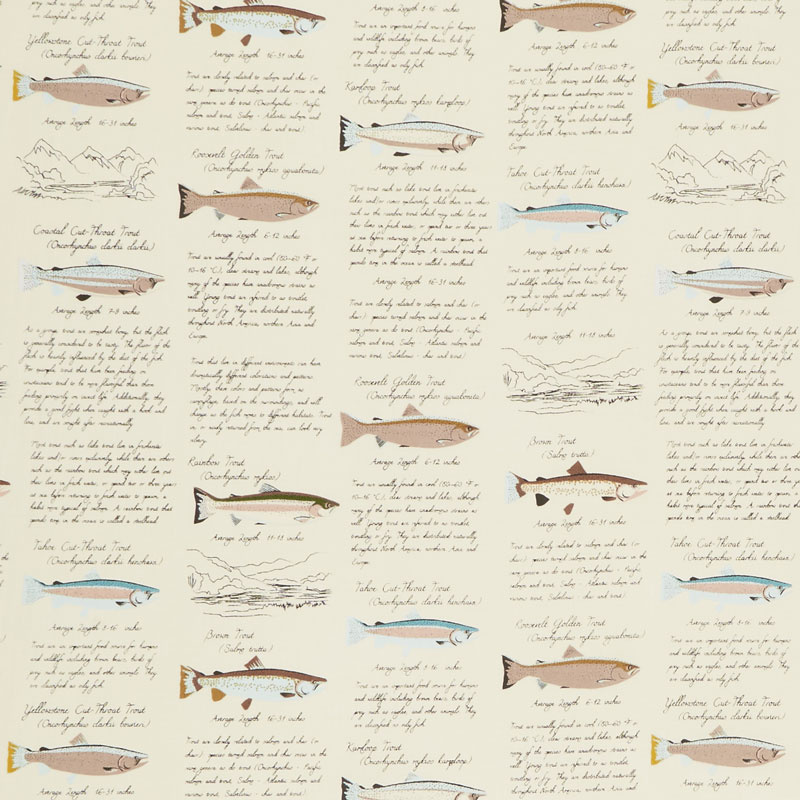 are classified as oily fish.
Yellowstone Cut-Throat Trout
(Oncorhynchus clarkii bouvieri)
Average Length 16-31 inches
Coastal Cut-Throat Trout
(Oncorhynchus clarkii clarkii)
Average Length 7-9 inches
As a group trout are somewhat bony, but the flesh
is generally considered to be tasty. The flavor of the
flesh is heavily influenced by the diet of the fish. For
example, trout that have been feeding on
crustaceans tend to be more flavorful than those
feeding primarily on insect life. Additionally, they
provide a good fight when caught with a hook and
line, and are sought after recreationally.
Most trout such as lake trout live in freshwater
lakes and/or rivers exclusively, while there are others
such as the rainbow trout which may either live out
their lives in fresh water, or spend two or three years
at sea before returning to fresh water to spawn, a
habit more typical of salmon. A rainbow trout that
spends time in the ocean is called a steelhead.
Tahoe Cut-Throat Trout
(Oncorhynchus clarkii henshawi)
Average Length 9-16 inches
Trout are an important food source for humans
and wildlife including brown bears, birds of
prey such as eagles, and other animals. They
are classified as oily fish.
Yellowstone Cut-Throat Trout
(Oncorhynchus clarkii bouvieri)
Average Length 16-31 inches
Average Length 16-31 inches
Trout are closely related to salmon and char (or
charr): species termed salmon and char occur in the
same genera as do trout (Oncorhynchus - Pacific
salmon and trout, Salmo - Atlantic salmon and
various trout, Salvelinus - char and trout).
Roosevelt Golden Trout
(Oncorhynchus mykiss aguabonita)
Average Length 6-12 inches
Trout are usually found in cool (50-60 °F or
10-16 °C), clear streams and lakes, although
many of the species have anadromous strains as
well. Young trout are referred to as troutlet,
troutling or fry. They are distributed naturally
throughout North America, northern Asia and
Europe.
Trout that live in different environments can have
dramatically different colorations and patterns.
Mostly, these colors and patterns form as
camouflage, based on the surroundings, and will
change as the fish moves to different habitats. Trout
in, or newly returned from the sea, can look very
silvery.
Rainbow Trout
(Oncorhynchus mykiss)
Average Length 11-18 inches
Brown Trout
(Salmo trutta)
Average Length 16-31 inches
Trout are closely related to salmon and char (or
charr): species termed salmon and char occur in the
same genera as do trout (Oncorhynchus - Pacific
salmon and trout, Salmo - Atlantic salmon and
various trout, Salvelinus - char and trout).
Average Length 9-16 inches
Trout are an important food source for humans
and wildlife including brown bears, birds of
prey such as eagles, and other animals. They
are classified as oily fish.
Kamloops Trout
(Oncorhynchus mykiss kamloops)
Average Length 11-18 inches
Most trout such as lake trout live in freshwater
lakes and/or rivers exclusively, while there are others
such as the rainbow trout which may either live out
their lives in fresh water, or spend two or three years
at sea before returning to fresh water to spawn, a
habit more typical of salmon. A rainbow trout that
spends time in the ocean is called a steelhead.
Average Length 16-31 inches
Trout are closely related to salmon and char (or
charr): species termed salmon and char occur in the
same genera as do trout (Oncorhynchus - Pacific
salmon and trout, Salmo - Atlantic salmon and
various trout, Salvelinus - char and trout).
Roosevelt Golden Trout
(Oncorhynchus mykiss aguabonita)
Average Length 6-12 inches
Trout are usually found in cool (50-60 °F or
10-16 °C), clear streams and lakes, although
many of the species have anadromous strains as
well. Young trout are referred to as troutlet,
troutling or fry. They are distributed naturally
throughout North America, northern Asia and
Europe.
Tahoe Cut-Throat Trout
(Oncorhynchus clarkii henshawi)
Average Length 9-16 inches
Trout are an important food source for humans
and wildlife including brown bears, birds of
prey such as eagles, and other animals. They
are classified as oily fish.
Kamloops Trout
(Oncorhynchus mykiss kamloops)
Average Length 6-12 inches
Trout are usually found in cool (50-60 °F or
10-16 °C), clear streams and lakes, although
many of the species have anadromous strains as
well. Young trout are referred to as troutlet,
troutling or fry. They are distributed naturally
throughout North America, northern Asia and
Europe.
Tahoe Cut-Throat Trout
(Oncorhynchus clarkii henshawi)
Average Length 9-16 inches
Trout are an important food source for humans
and wildlife including brown bears, birds of
prey such as eagles, and other animals. They
are classified as oily fish.
Average Length 11-18 inches
Brown Trout
(Salmo trutta)
Average Length 16-31 inches
Trout are closely related to salmon and char (or
charr): species termed salmon and char occur in the
same genera as do trout (Oncorhynchus - Pacific
salmon and trout, Salmo - Atlantic salmon and
various trout, Salvelinus - char and trout).
Roosevelt Golden Trout
(Oncorhynchus mykiss aguabonita)
Average Length 6-12 inches
Trout are usually found in cool (50-60 °F or
10-16 °C), clear streams and lakes, although
many of the species have anadromous strains as
well. Young trout are referred to as troutlet,
troutling or fry. They are distributed naturally
throughout North America, northern Asia and
prey such as eagles, and other animals. They
are classified as oily fish.
Yellowstone Cut-Throat Trout
(Oncorhynchus clarkii bouvieri)
Average Length 16-31 inches
Coastal Cut-Throat Trout
(Oncorhynchus clarkii clarkii)
Average Length 7-9 inches
As a group trout are somewhat bony, but the flesh
is generally considered to be tasty. The flavor of the
flesh is heavily influenced by the diet of the fish. For
example, trout that have been feeding on
crustaceans tend to be more flavorful than those
feeding primarily on insect life. Additionally, they
provide a good fight when caught with a hook and
line, and are sought after recreationally.
Most trout such as lake trout live in freshwater
lakes and/or rivers exclusively, while there are others
such as the rainbow trout which may either live out
their lives in fresh water, or spend two or three years
at sea before returning to fresh water to spawn, a
habit more typical of salmon. A rainbow trout that
spends time in the ocean is called a steelhead.
Tahoe Cut-Throat Trout
(Oncorhynchus clarkii henshawi)
Average Length 9-16 inches
Trout are an important food source for humans
and wildlife including brown bears, birds of
prey such as eagles, and other animals. They
are classified as oily fish.
Yellowstone Cut-Throat Trout
(Oncorhynchus clarkii bouvieri)
Average Length 16-31 inches